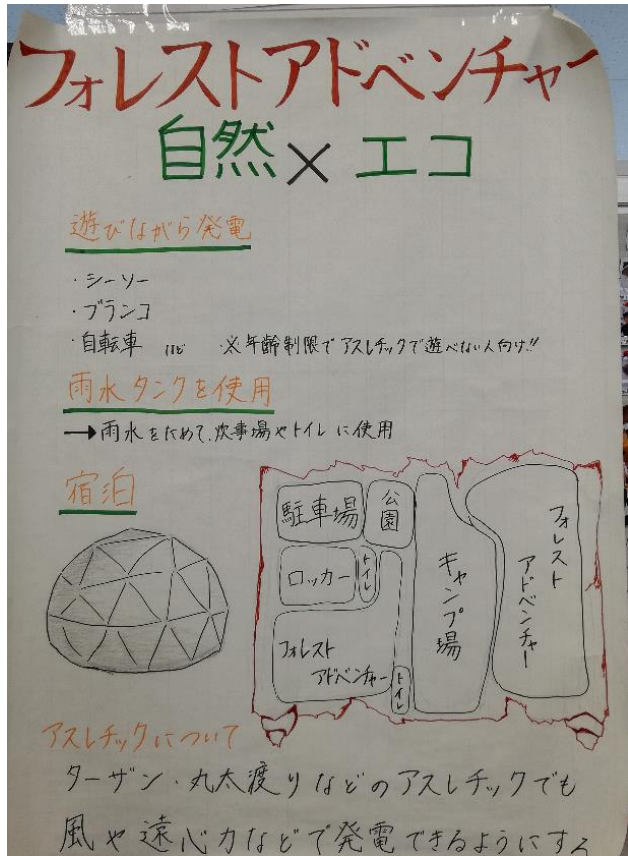 フォレストアドベンチャー
自然×エコ
遊びながら発電
・シーソー
・ブランコ
・自転車 など ※年齢制限でアスレチックで遊べない人向け!!
雨水タンクを使用
→雨水をためて、炊事場やトイレに使用
宿泊
駐車場
公園
ロッカー
トイレ
フォレスト
アドベンチャー
トイレ
キャンプ場
フォレスト
アドベンチャー
アスレチックについて
ターザン・丸太渡りなどのアスレチックでも
風や遠心力などで発電できるようにする